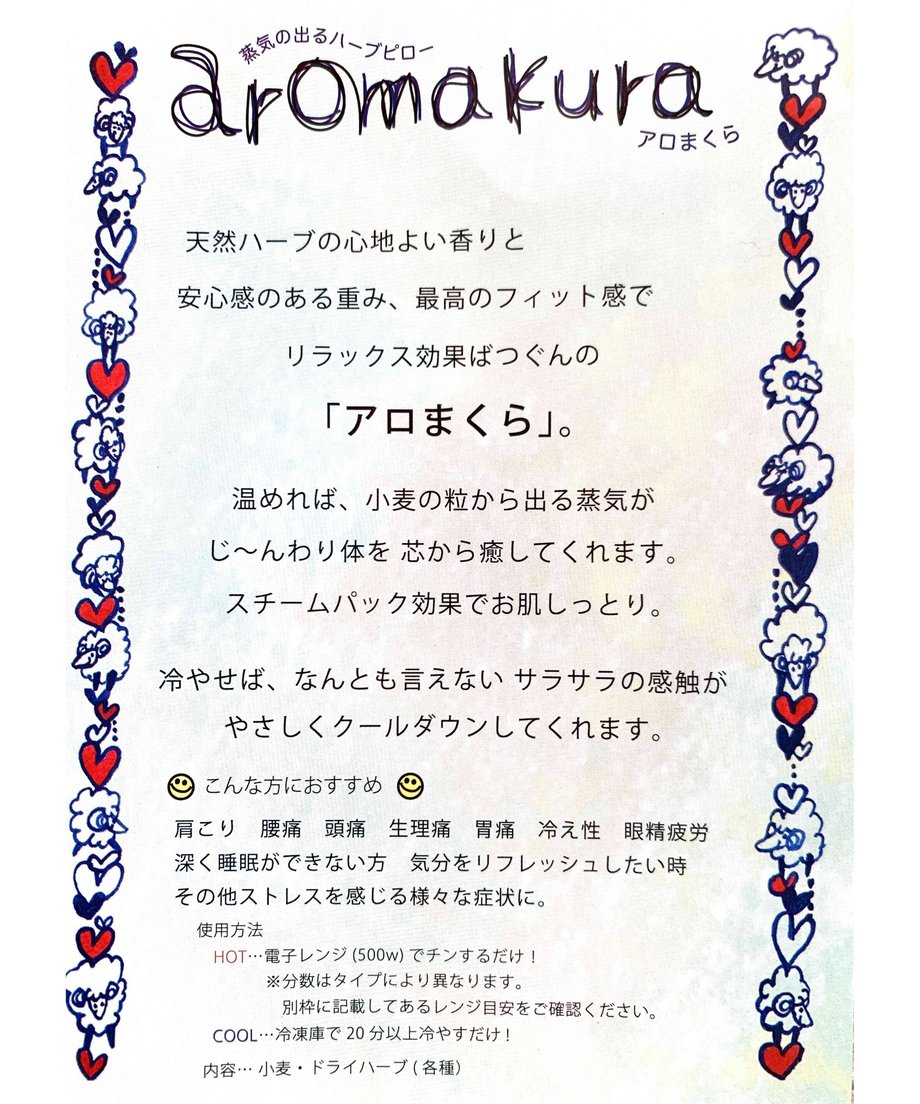 蒸気の出るハーブピロー
aromakura
アロまくら
天然ハーブの心地よい香りと
安心感のある重み、最高のフィット感で
リラックス効果ばつぐんの
「アロまくら」。
温めれば、小麦の粒から出る蒸気が
じ〜んわり体を 芯から癒してくれます。
スチームパック効果でお肌しっとり。
冷やせば、なんとも言えない サラサラの感触が
やさしくクールダウンしてくれます。
こんな方におすすめ
肩こり 腰痛 頭痛 生理痛 胃痛 冷え性 眼精疲労
深く睡眠ができない方 気分をリフレッシュしたい時
その他ストレスを感じる様々な症状に。
使用方法
HOT…電子レンジ (500w) でチンするだけ！
※分数はタイプにより異なります。
別枠に記載してあるレンジ目安をご確認ください。
COOL…冷凍庫で 20 分以上冷やすだけ！
内容… 小麦・ドライハーブ ( 各種）